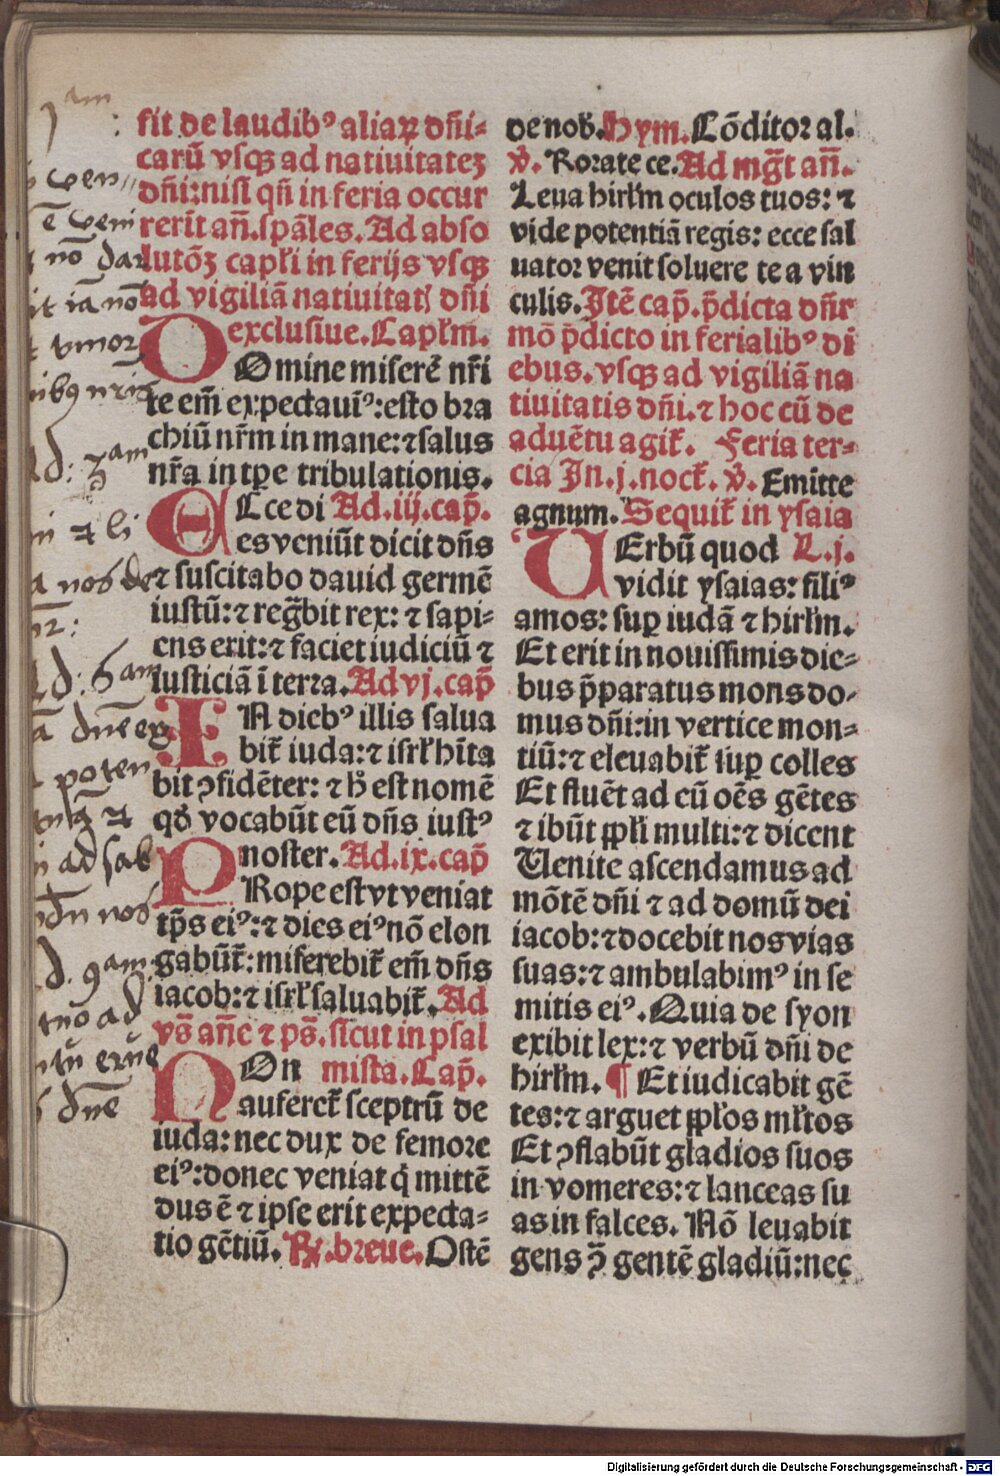 fit de laudibꝰ aliaꝝ dñi⸗
carū vsqꝫ ad natiuitateꝫ
dñi: nisi qñ in feria occur
rerit añ. spāles. Ad abso
lutōꝫ capłi in ferijs vsqꝫ
ad vigiliā natiuitatꝭ dñi
exclusiue. Caplm̄.
DOmine miserē nr̄i
te em̄ expectauiꝰ: esto bra
chiū nr̄m in mane: ⁊ salus
nr̄a in tp̄e tribulationis.
ECce di Ad. iij. cap̄.
es veniūt dicit dñs
⁊ suscitabo dauid germē
iustū: ⁊ regn̄bit rex: ⁊ sapi⸗
ens erit: ⁊ faciet iudiciū ⁊
iusticiā ī terra. Ad vj. cap̄
IN diebꝰ illis salua
bit̄ iuda: ⁊ isrł hīta
bit ꝯfidēter: ⁊ h̄ est nomē
qd̄ vocabūt eū dñs iustꝰ
noster. Ad. ix. cap̄
PRope est vt veniat
tp̄s eiꝰ: ⁊ dies eiꝰ nō elon
gabūt̄: miserebit̄ em̄ dñs
iacob: ⁊ isrł saluabit̄. Ad
vs̄ añe ⁊ ps̄. sicut in psal
NOn mista. Cap̄.
auferet̄ sceptrū de
iuda: nec dux de femore
eiꝰ: donec veniat q̄ mittē
dus ē ⁊ ipse erit expecta⸗
tio gētiū. ℟. breue. Ostē
de nob̄. Hym. Cōditor al.
℣. Rorate ce. Ad mgt̄ añ.
Leua hirłm oculos tuos: ⁊
vide potentiā regis: ecce sal
uator venit soluere te a vin
culis. Itē cap̄. p̄dicta dñr
mō p̄dicto in ferialibꝰ di
ebus. vsqꝫ ad vigiliā na
tiuitatis dñi. ⁊ hoc cū de
aduētu agit̄. Feria ter⸗
cia In. j. noct̄. ℣. Emitte
agnum. Sequit̄ in ysaia
UErbū quod L. j.
vidit ysaias: filiꝰ
amos: suꝑ iudā ⁊ hirłm.
Et erit in nouissimis die⸗
bus p̄paratus mons do⸗
mus dñi: in vertice mon⸗
tiū: ⁊ eleuabit̄ suꝑ colles
Et fluēt ad eū oēs gētes
⁊ ibūt ppłi multi: ⁊ dicent
Uenite ascendamus ad
mōtē dñi ⁊ ad domū dei
iacob: ⁊ docebit nos vias
suas: ⁊ ambulabimꝰ in se
mitis eiꝰ. Quia de syon
exibit lex: ⁊ verbū dñi de
hirłm. ¶ Et iudicabit gē
tes: ⁊ arguet ppłos młtos
Et ꝯflabūt gladios suos
in vomeres: ⁊ lanceas su
as in falces. Nō leuabit
gens ꝯ̄ gentē gladiū: nec
Digitalisierung gefördert durch die Deutsche Forschungsgemeinschaft - DFG